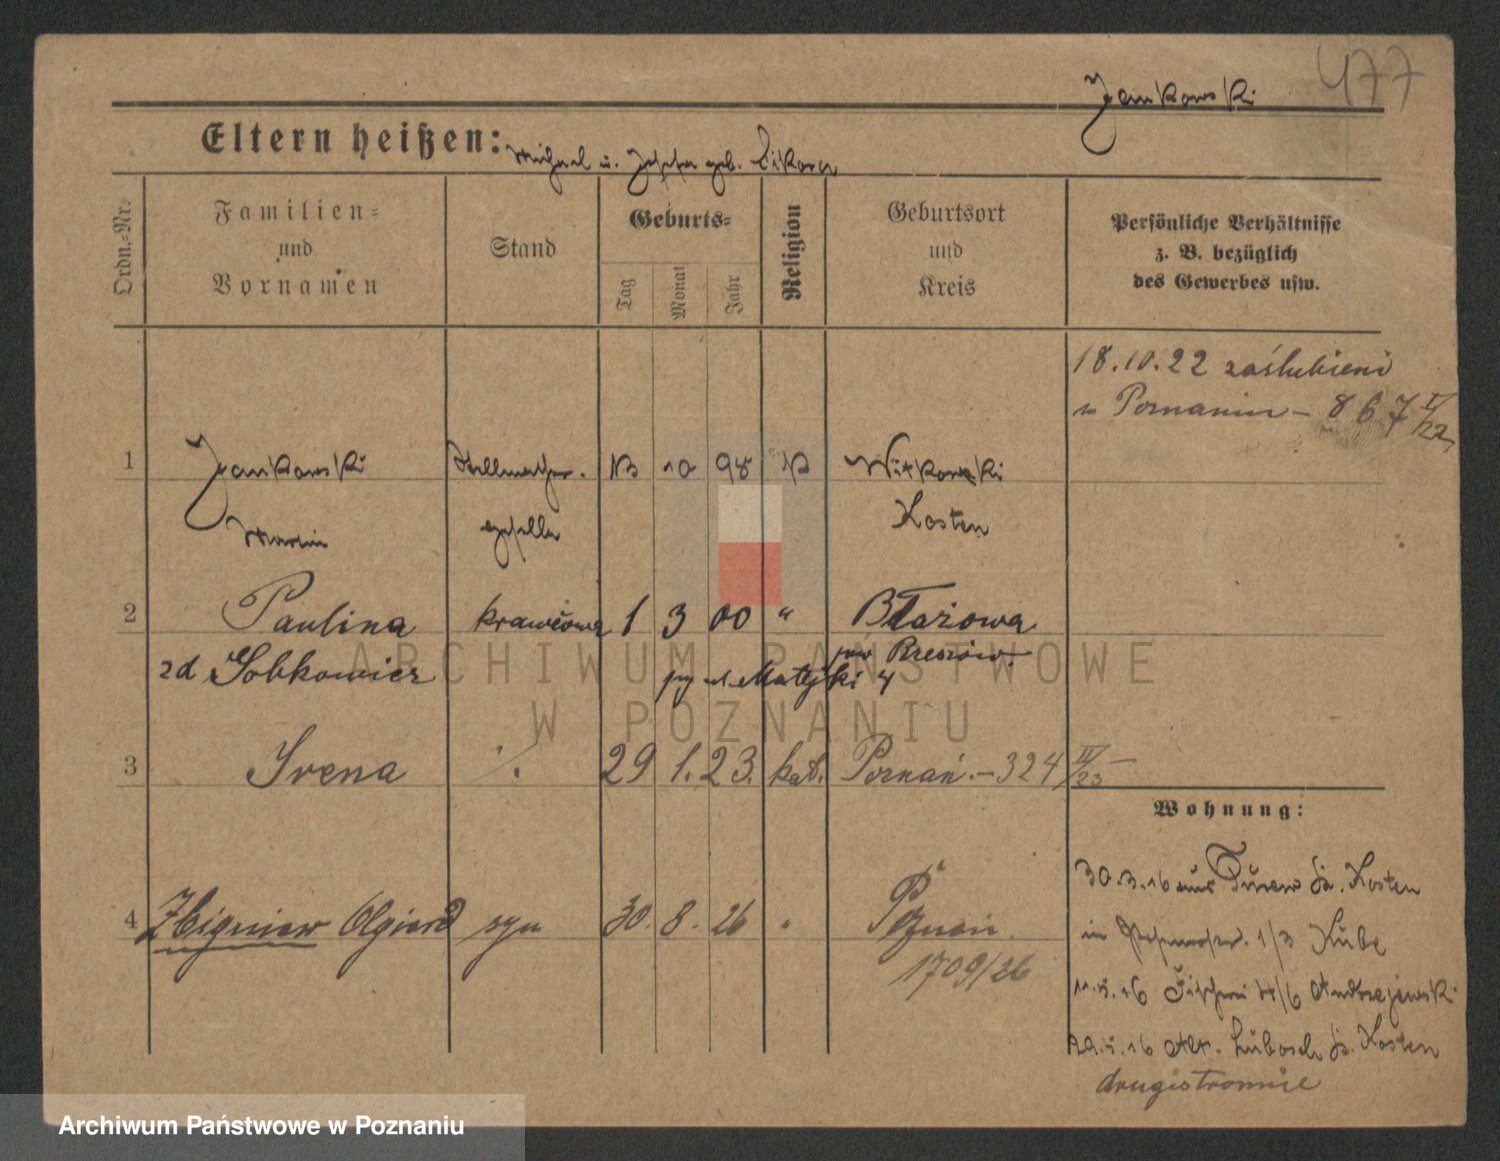 477
Jankowski
Eltern heißen: Michael u. Josefa geb. Sikora
Ordn.-Nr.
Familien- und Vornamen
Stand
Geburts-
Tag
Monat
Jahr
Religion
Geburtsort und Kreis
Persönliche Verhältnisse
z. B. bezüglich
des Gewerbes usw.
18.10.22 zaślubieni
w Poznaniu - 867 II/22
1 Jankowski Stellmacher- 10 98 K Witkowki
Marcin geselle Kosten
2 Paulina krawcowa 1 3 00 " Błażowa
zd Sobkowicz pow Rzeszów.
Matejki 4
3 Irena ./. 29 1. 23. kat. Poznań. - 324 II/23 -
Wohnung:
30.3.16 aus Turew Kr. Kosten
4 Zbigniew Olgierd syn 30. 8. 26 " Poznań.
1709/26
in 1/3 Kube
11.5.16 4/6 Andrzejewski
29.5.16 Lubosch Kr. Kosten
drugistronnie
ARCHIWUM PAŃSTWOWE
W POZNANIU
Archiwum Państwowe w Poznaniu